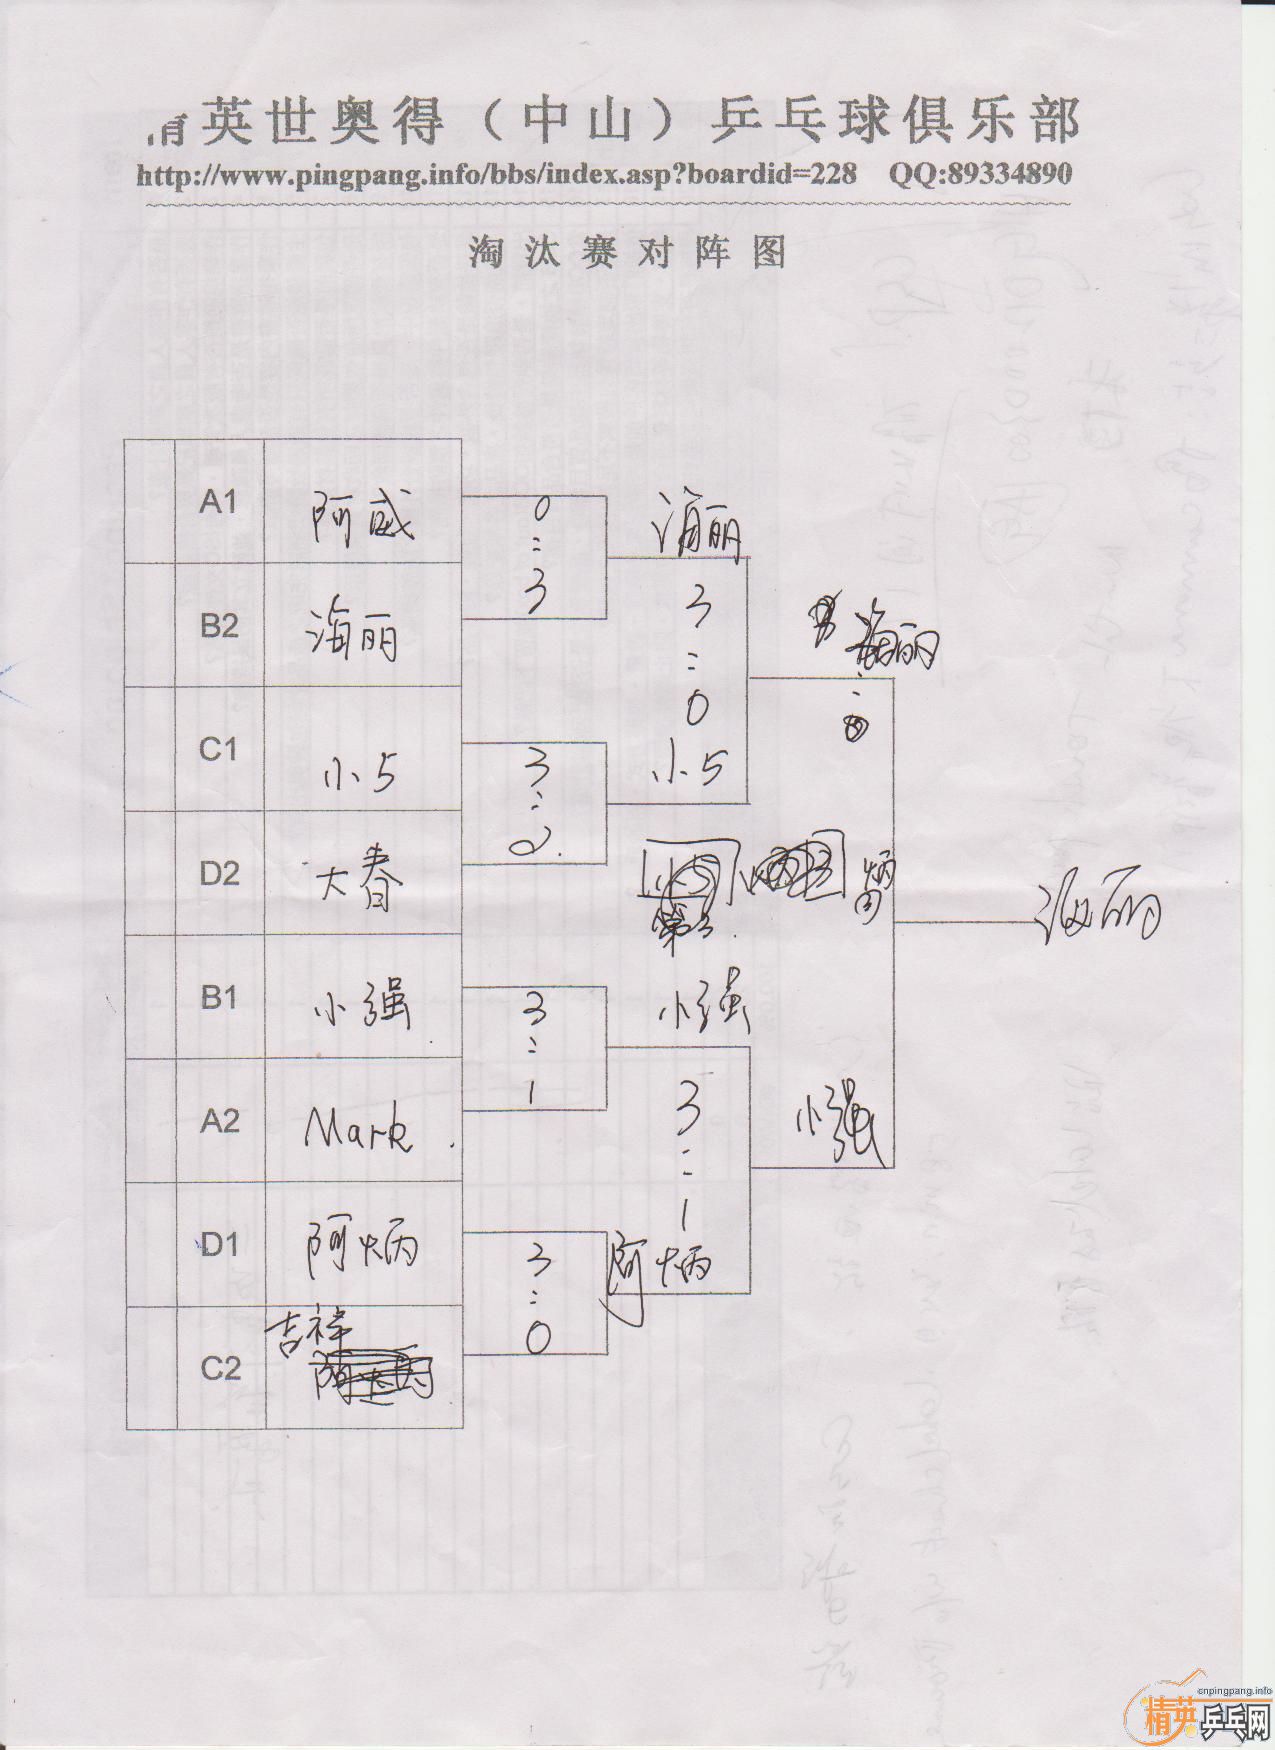 英世奥得（中山）乒乓球俱乐部
http://www.pingpang.info/bbs/index.asp?boardid=228 QQ:89334890
淘汰赛对阵图
A1 阿威
0
:
3
海丽
B2 海丽
3
:
0
海丽
C1 小5
3
:
小5
D2 大春
海丽
B1 小强
3
:
1
小强
A2 Mark
3
:
1
小强
D1 阿炳
3
:
0
阿炳
C2 吉祥
cnpingpang.info
精英乒乓网